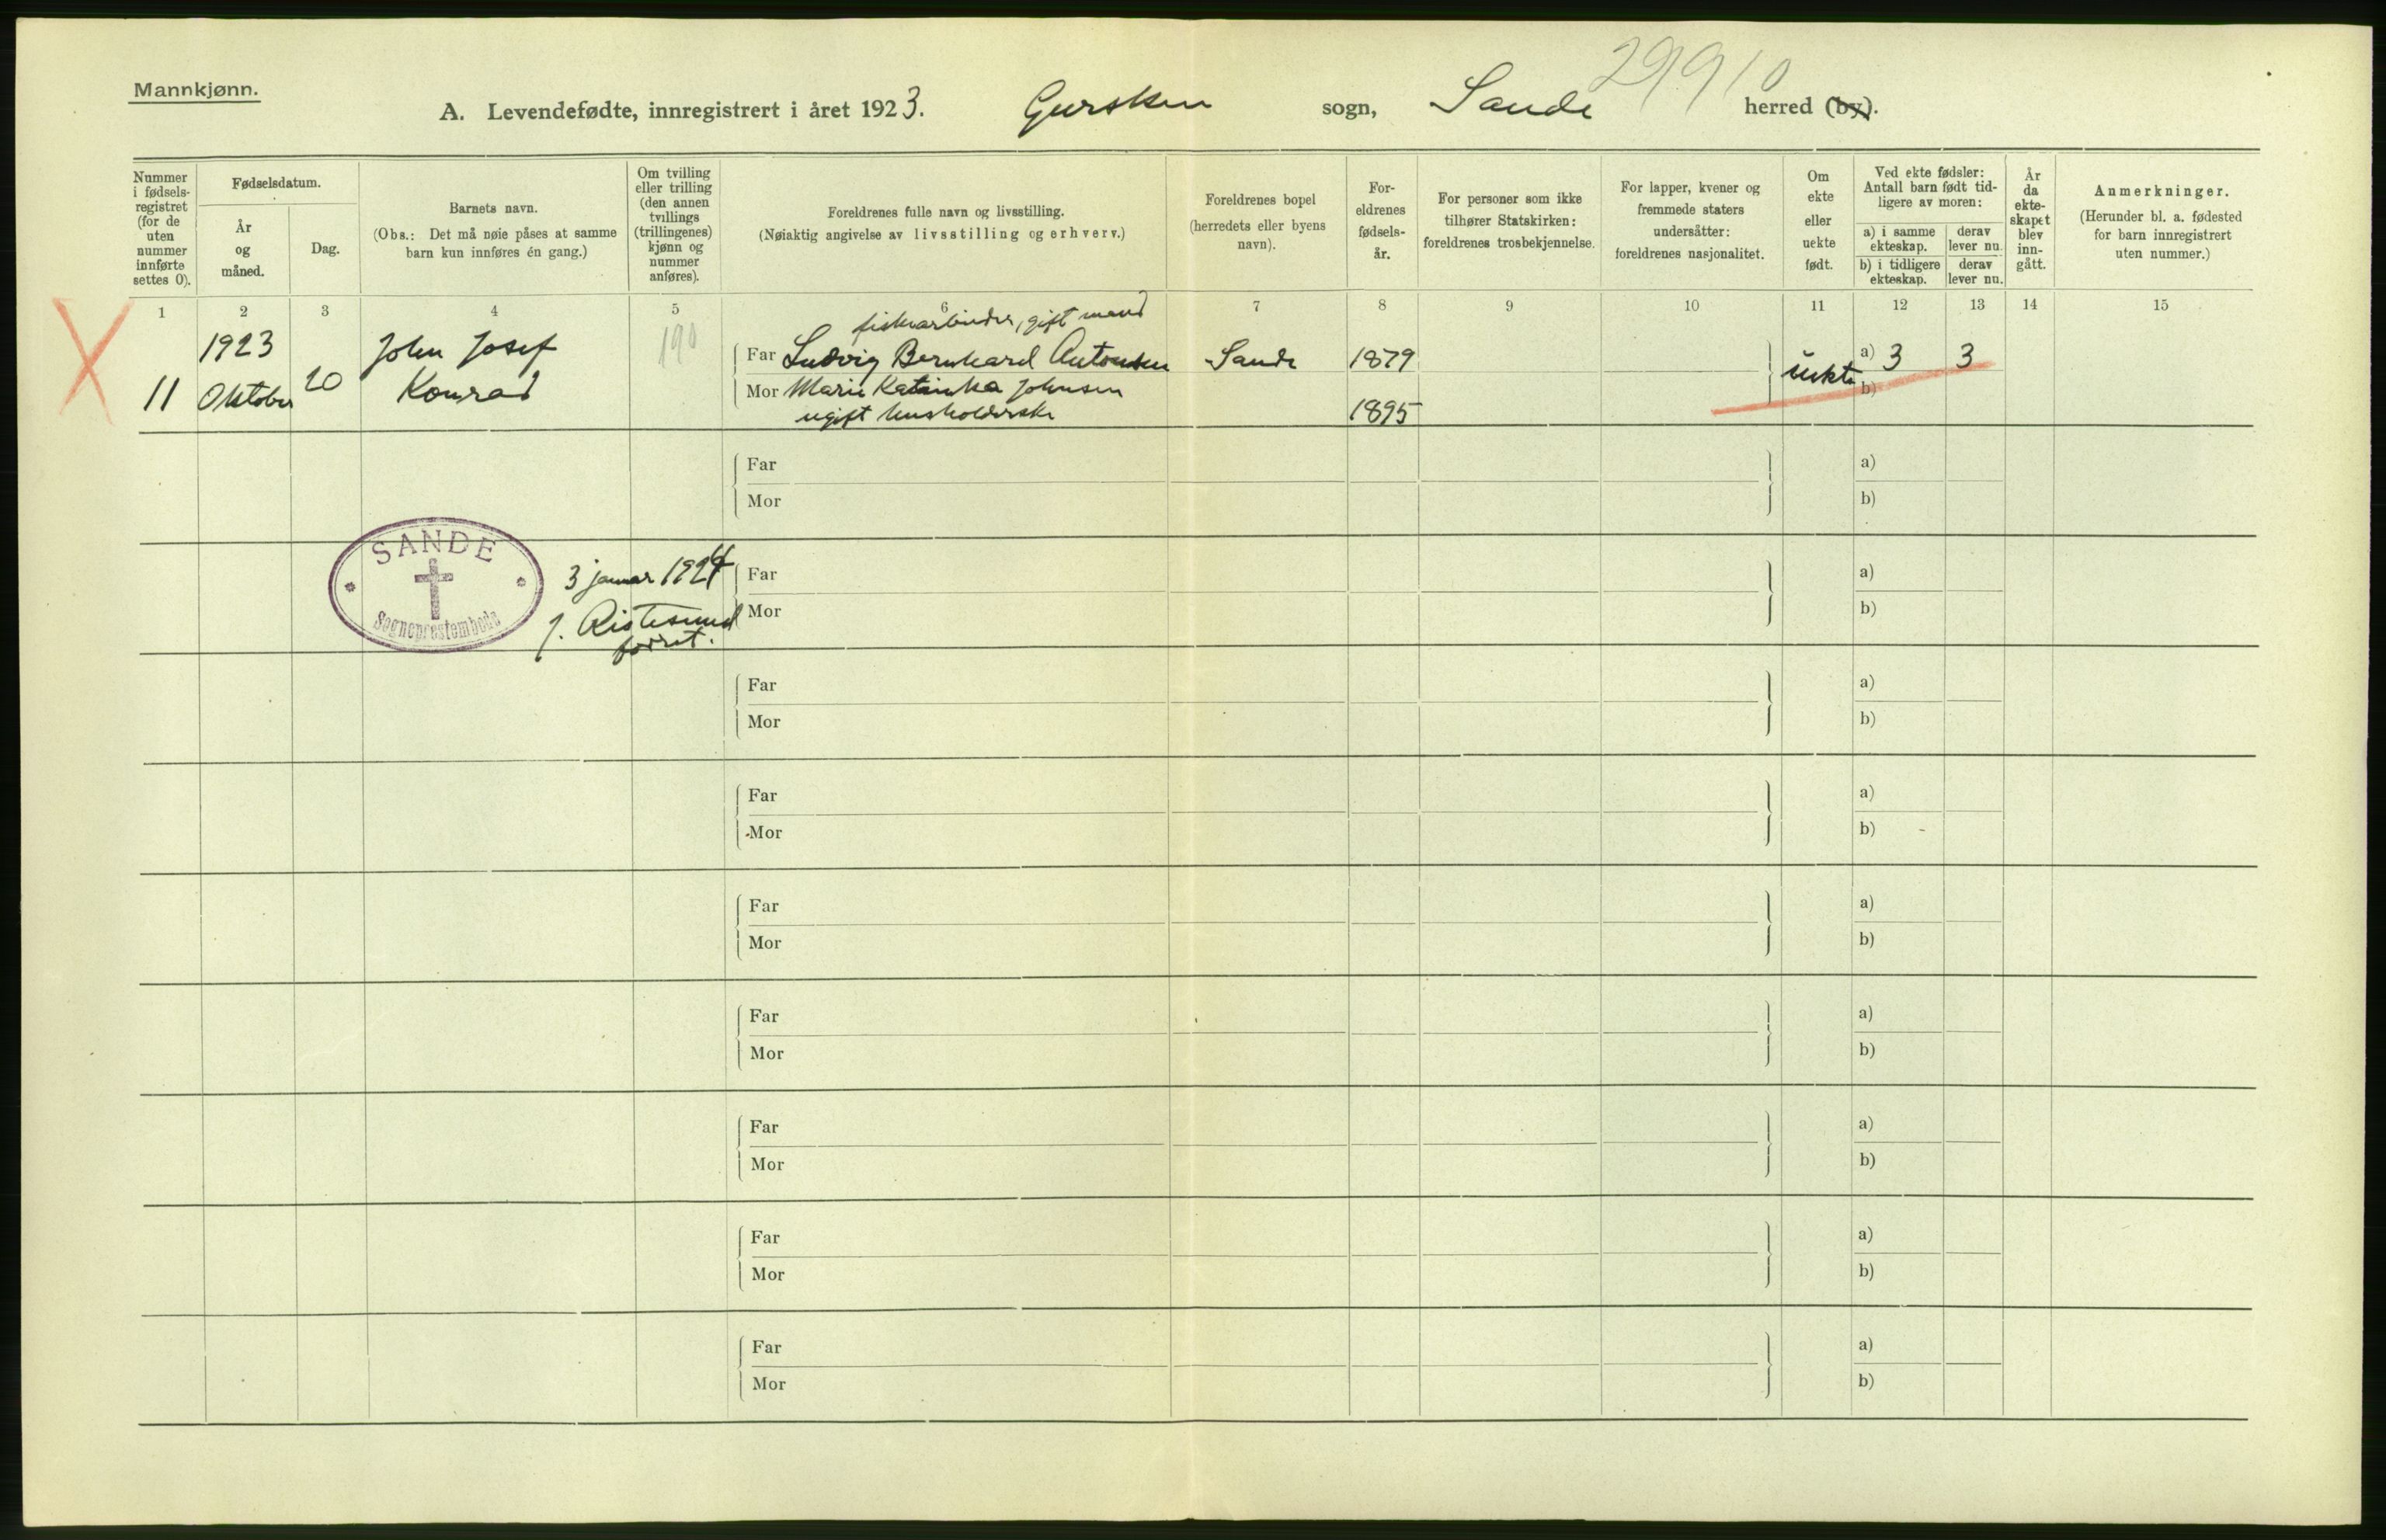 Mannkjønn.
29910
A. Levendefødte, innregistrert i året 1923. Gursken sogn, Sande herred (by).
Nummer i fødsels-registret (for de uten nummer innførte settes 0).
Fødselsdatum.
År og måned.
Dag.
Barnets navn.
(Obs.: Det må nøie påses at samme barn kun innføres én gang.)
Om tvilling eller trilling (den annen tvillings (trillingenes) kjønn og nummer anføres).
Foreldrenes fulle navn og livsstilling.
(Nøiaktig angivelse av livsstilling og erhverv.)
Foreldrenes bopel (herredets eller byens navn).
For-eldrenes fødsels-år.
For personer som ikke tilhører Statskirken: foreldrenes trosbekjennelse.
For lapper, kvener og fremmede staters undersåtter: foreldrenes nasjonalitet.
Om ekte eller uekte født.
Ved ekte fødsler: Antall barn født tid-ligere av moren:
a) i samme ekteskap.
derav lever nu.
b) i tidligere ekteskap.
derav lever nu.
År da ekte-skapet blev inn-gått.
Anmerkninger.
(Herunder bl. a. fødested for barn innregistrert uten nummer.)
1 2 3 4 5 6 7 8 9 10 11 12 13 14 15
fiskarbinder, gift mand
1923 John Josef 190 Far Ludvig Bernhard Antonsen Sande 1879 a) 3 3
11 Oktober 20 Konrad Mor Marie Katinka Johnsen uekte b)
ugift husholderske 1895
Far a)
Mor b)
SANDE
Sogneprestembede
3 januar 1924
J. Ristesund
forret.
Far a)
Mor b)
Far a)
Mor b)
Far a)
Mor b)
Far a)
Mor b)
Far a)
Mor b)
Far a)
Mor b)
Far a)
Mor b)
Far a)
Mor b)